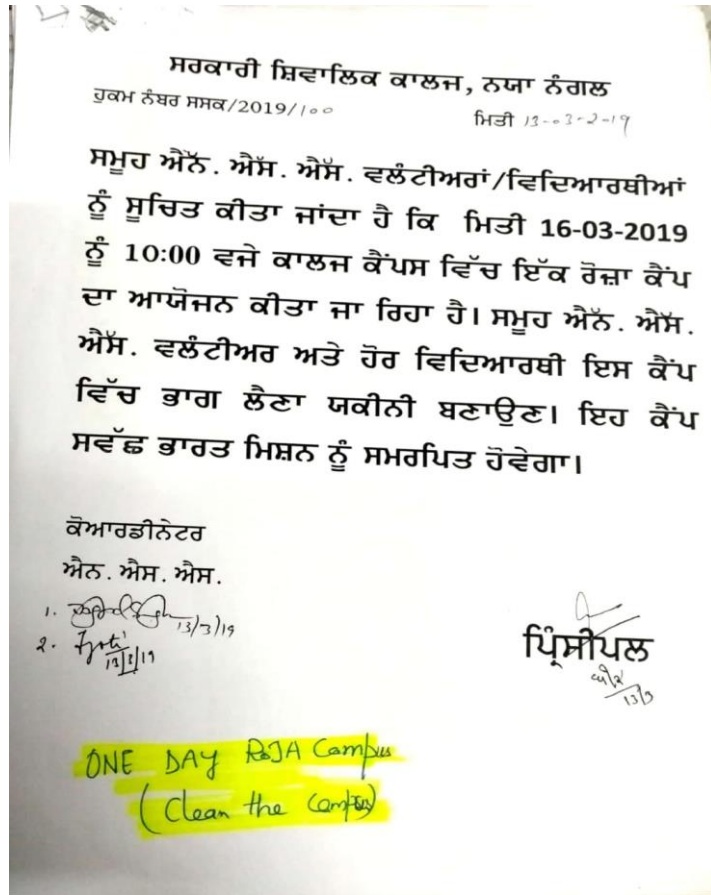 ਸਰਕਾਰੀ ਸ਼ਿਵਾਲਿਕ ਕਾਲਜ, ਨਯਾ ਨੰਗਲ
ਹੁਕਮ ਨੰਬਰ ਸਸਕ/2019/100
ਮਿਤੀ 13-03-2-19
ਸਮੂਹ ਐੱਨ. ਐੱਸ. ਐੱਸ. ਵਲੰਟੀਅਰਾਂ/ਵਿਦਿਆਰਥੀਆਂ
ਨੂੰ ਸੂਚਿਤ ਕੀਤਾ ਜਾਂਦਾ ਹੈ ਕਿ ਮਿਤੀ 16-03-2019
ਨੂੰ 10:00 ਵਜੇ ਕਾਲਜ ਕੈਂਪਸ ਵਿੱਚ ਇੱਕ ਰੋਜ਼ਾ ਕੈਂਪ
ਦਾ ਆਯੋਜਨ ਕੀਤਾ ਜਾ ਰਿਹਾ ਹੈ। ਸਮੂਹ ਐੱਨ. ਐੱਸ.
ਐੱਸ. ਵਲੰਟੀਅਰ ਅਤੇ ਹੋਰ ਵਿਦਿਆਰਥੀ ਇਸ ਕੈਂਪ
ਵਿੱਚ ਭਾਗ ਲੈਣਾ ਯਕੀਨੀ ਬਣਾਉਣ। ਇਹ ਕੈਂਪ
ਸਵੱਛ ਭਾਰਤ ਮਿਸ਼ਨ ਨੂੰ ਸਮਰਪਿਤ ਹੋਵੇਗਾ।
ਕੋਆਰਡੀਨੇਟਰ
ਐਨ. ਐਸ. ਐਸ.
1. 13/3/19
2. Jyoti
13/3/19
ਪ੍ਰਿੰਸੀਪਲ
13/3
ONE DAY ROJA Campus
(Clean the Campus)